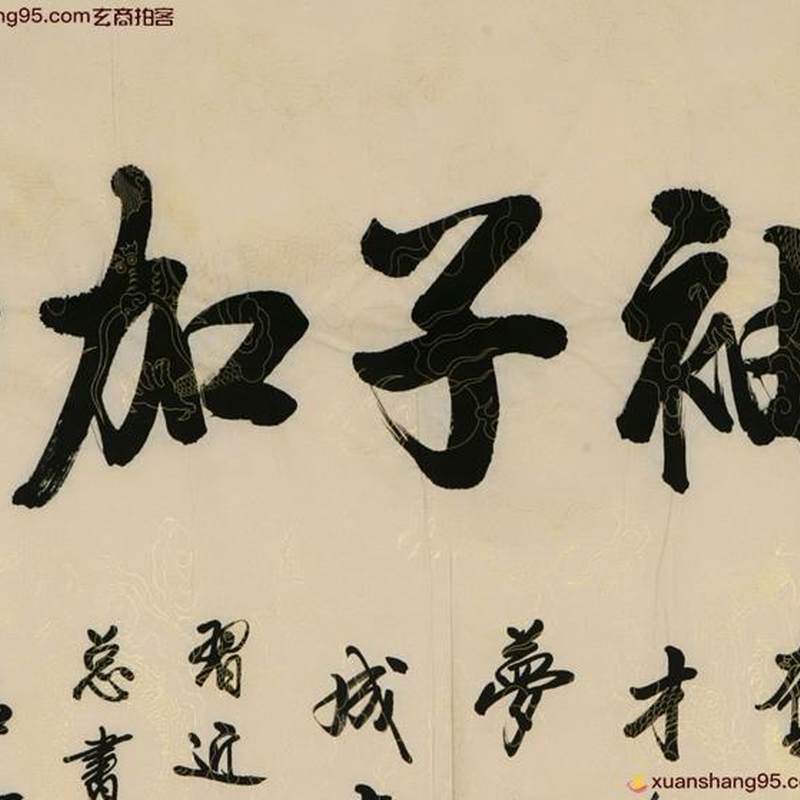 ng95.com玄商拍客
袖子加
才
夢
成
習近
总書
xuanshang95.co